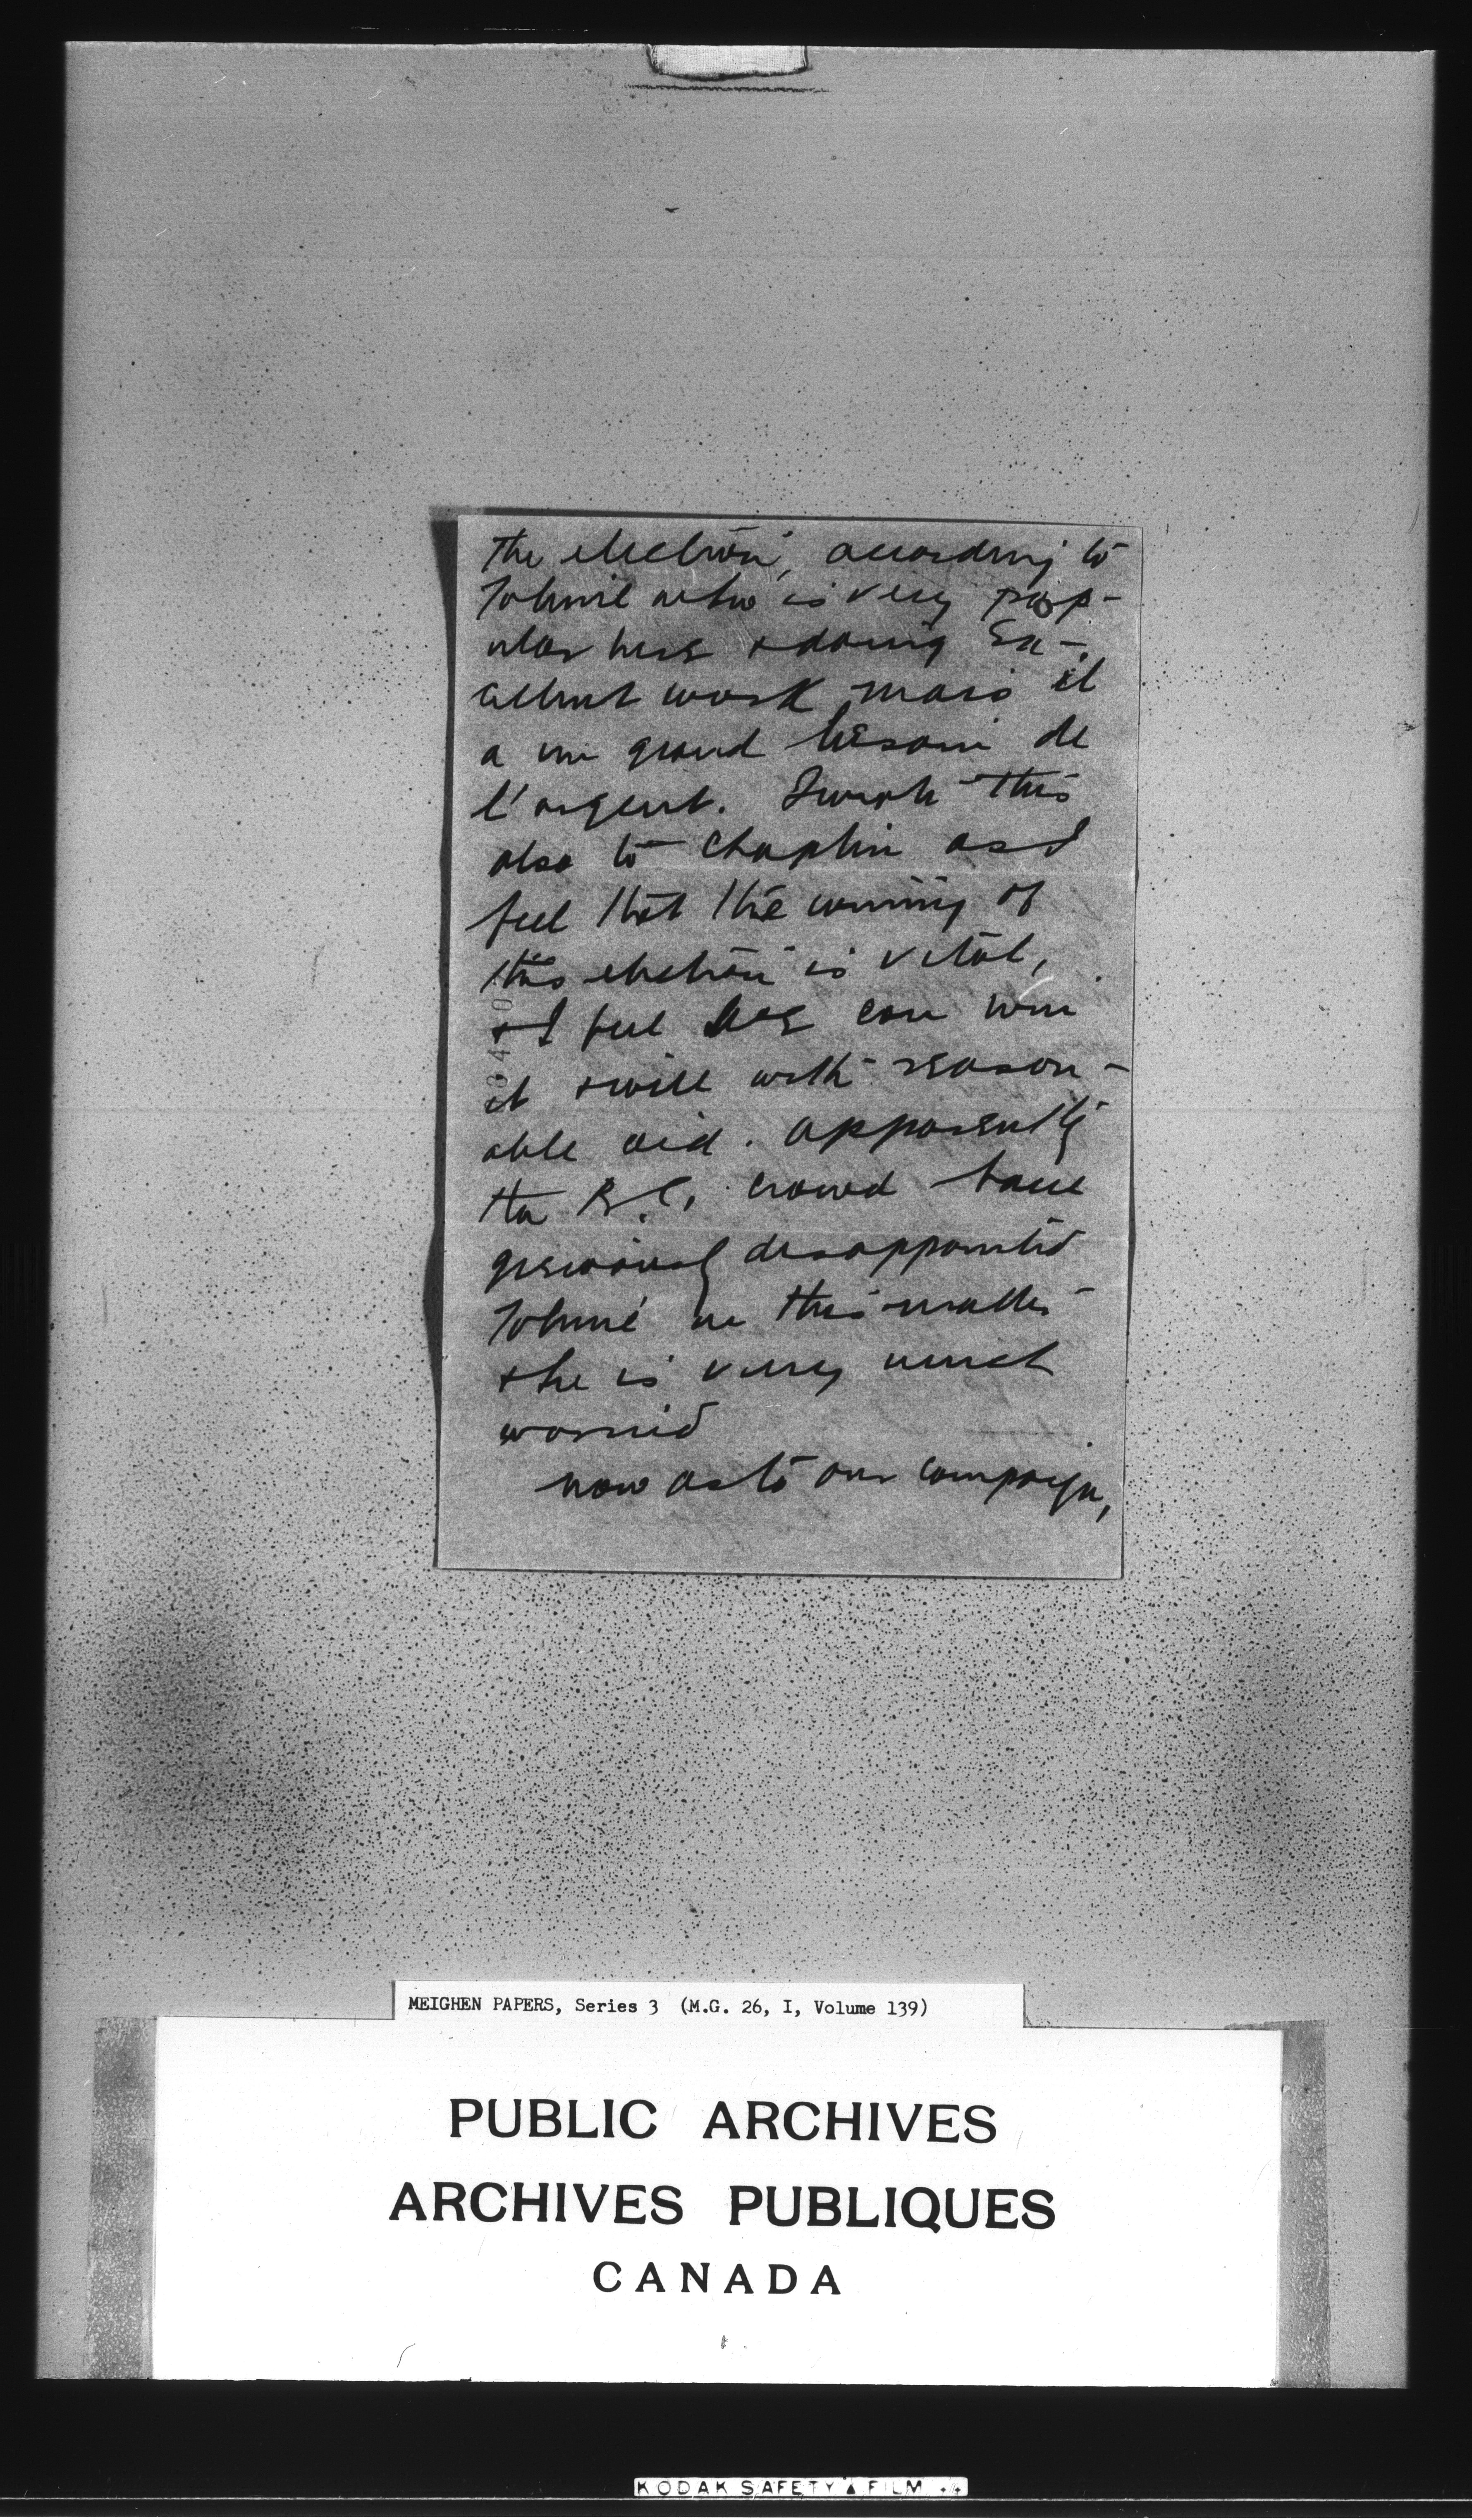 the election, according to
Tolmie who is very pop-
ular here & doing Ex-
cellent work mais il
a un grand besoin de
l'argent. I wrote this
also to Chaplin as I
feel that the winning of
this election is vital,
& I feel we can win
it & will with reason-
able aid. apparently
the B.C. crowd have
grieviously disappointed
Tolmie in this matter
& he is very much
worried
now as to our campaign,
MEIGHEN PAPERS, Series 3 (M.G. 26, I, Volume 139)
PUBLIC ARCHIVES
ARCHIVES PUBLIQUES
CANADA
KODAK SAFETY ▲ FILM